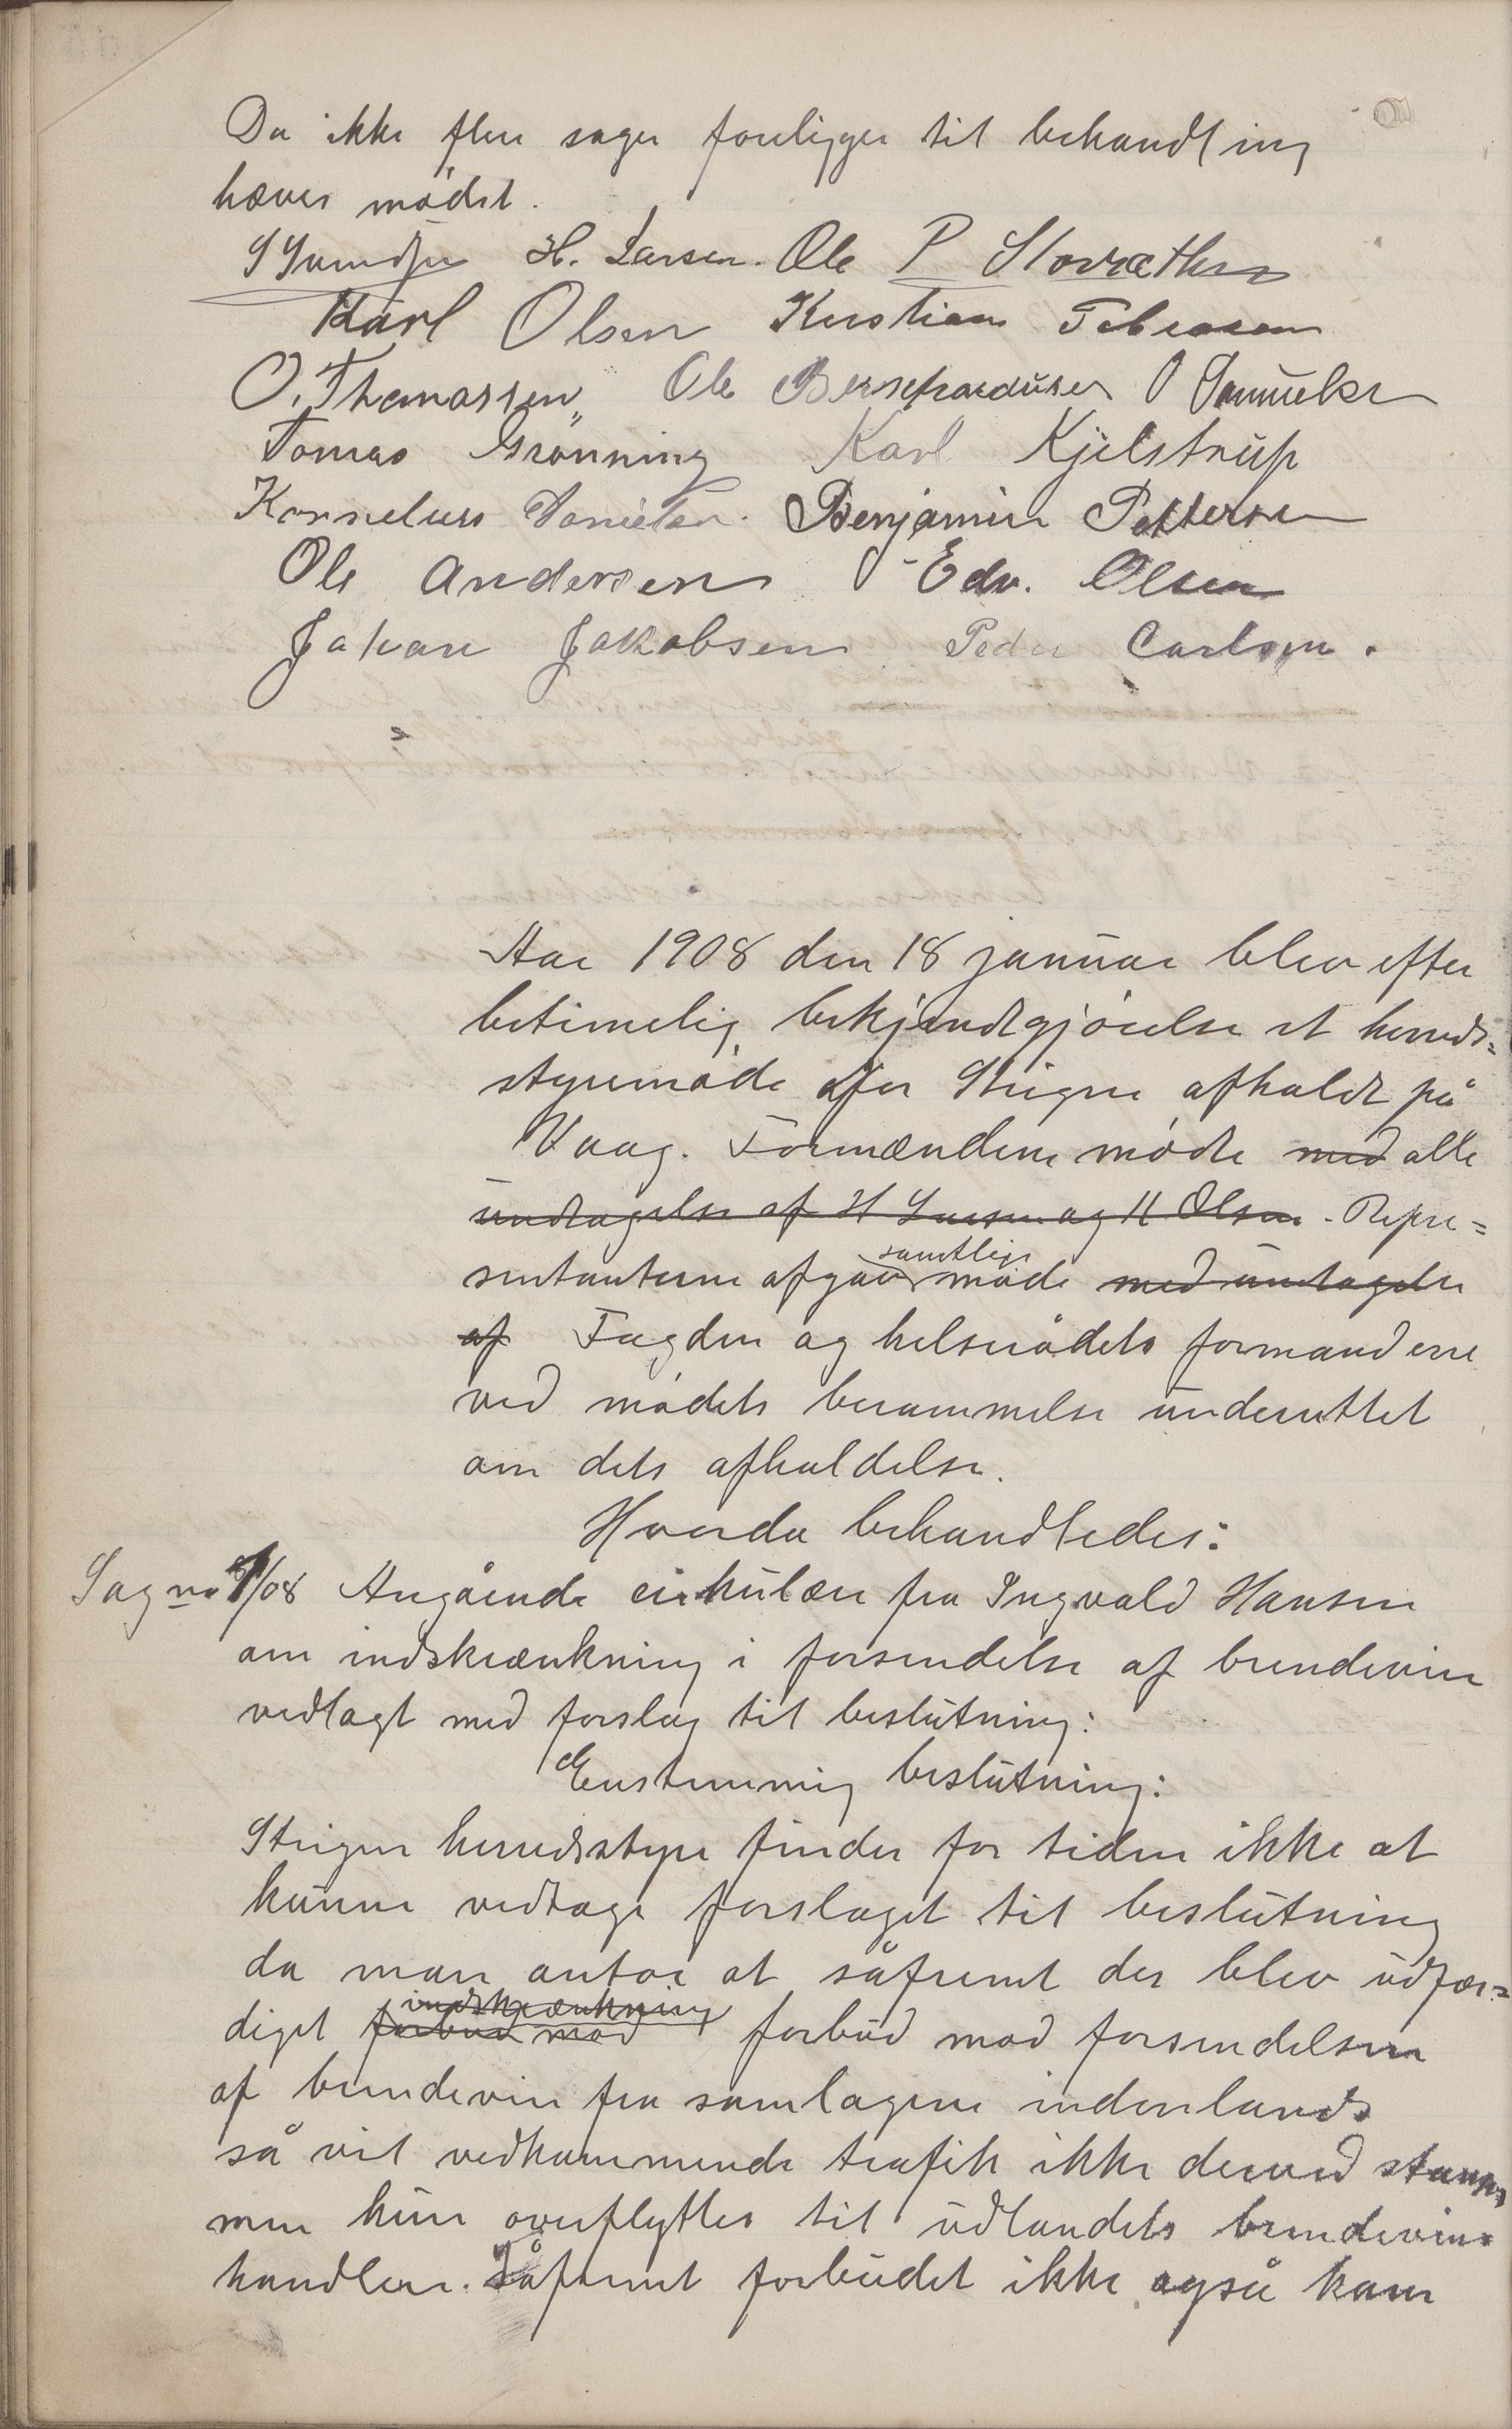 Da ikke flere sager foreligger til behandling
hæves mødet.
H. Larsen. Ole P Storvæther
Karl Olsen Kristian Tobiassen
O. Thomassen Ole Bernharduser O Samuelsen
Tomas Grönning Karl Kjelstrup
Kornelius Danielsen. Benjamin Pettersen
Ole Andersen Edv. Olsen
Johan Jakobsen Peder Carlsen.
Aar 1908 den 18 januar blev efter
betimelig bekjendtgjørelse et herreds=
styremøde for Steigen afholdt på
Vaag. Formændene mødte med alle
undtagelse af H Larsen og H Olsen. Repre=
sentanterne afgav samtlige møde med undtagelse
af Fogden og helserådets formand ere
ved mødets berammelse underrettet
om dets afholdelse.
Hvorda behandledes:
Sag no 1/08 Angående cirkulære fra Ingvald Hansen
om indskrænkning i forsendelse af brændevin
vedlagt med forslag til beslutning:
Enstemmig beslutning:
Steigen herredsstyre finder for tiden ikke at
kunne vedtage forslaget til beslutning
da man antar at såfremt der blev udfær=
diget forbud mod indskrænkning forbud mod forsendelsen
af brændevin fra samlagene indenlands
så vil vedkommende trafik ikke derved stanse
men kun overflyttes til udlandets brændevins
handlere. Såfremt forbudet ikke også kam